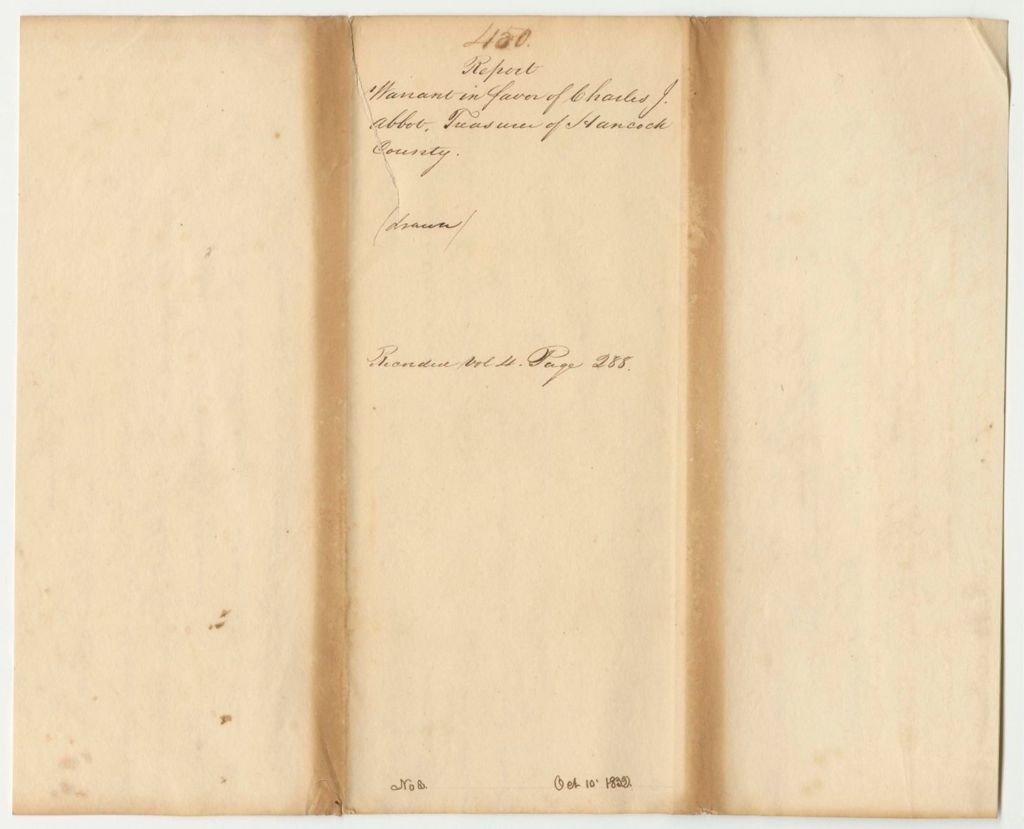 450.
Report
Warrant in favor of Charles J.
Abbot, Treasurer of Hancock
County.
(drawn)
Recorded Vol 4. Page 288.
No 8. Oct 10 1832.